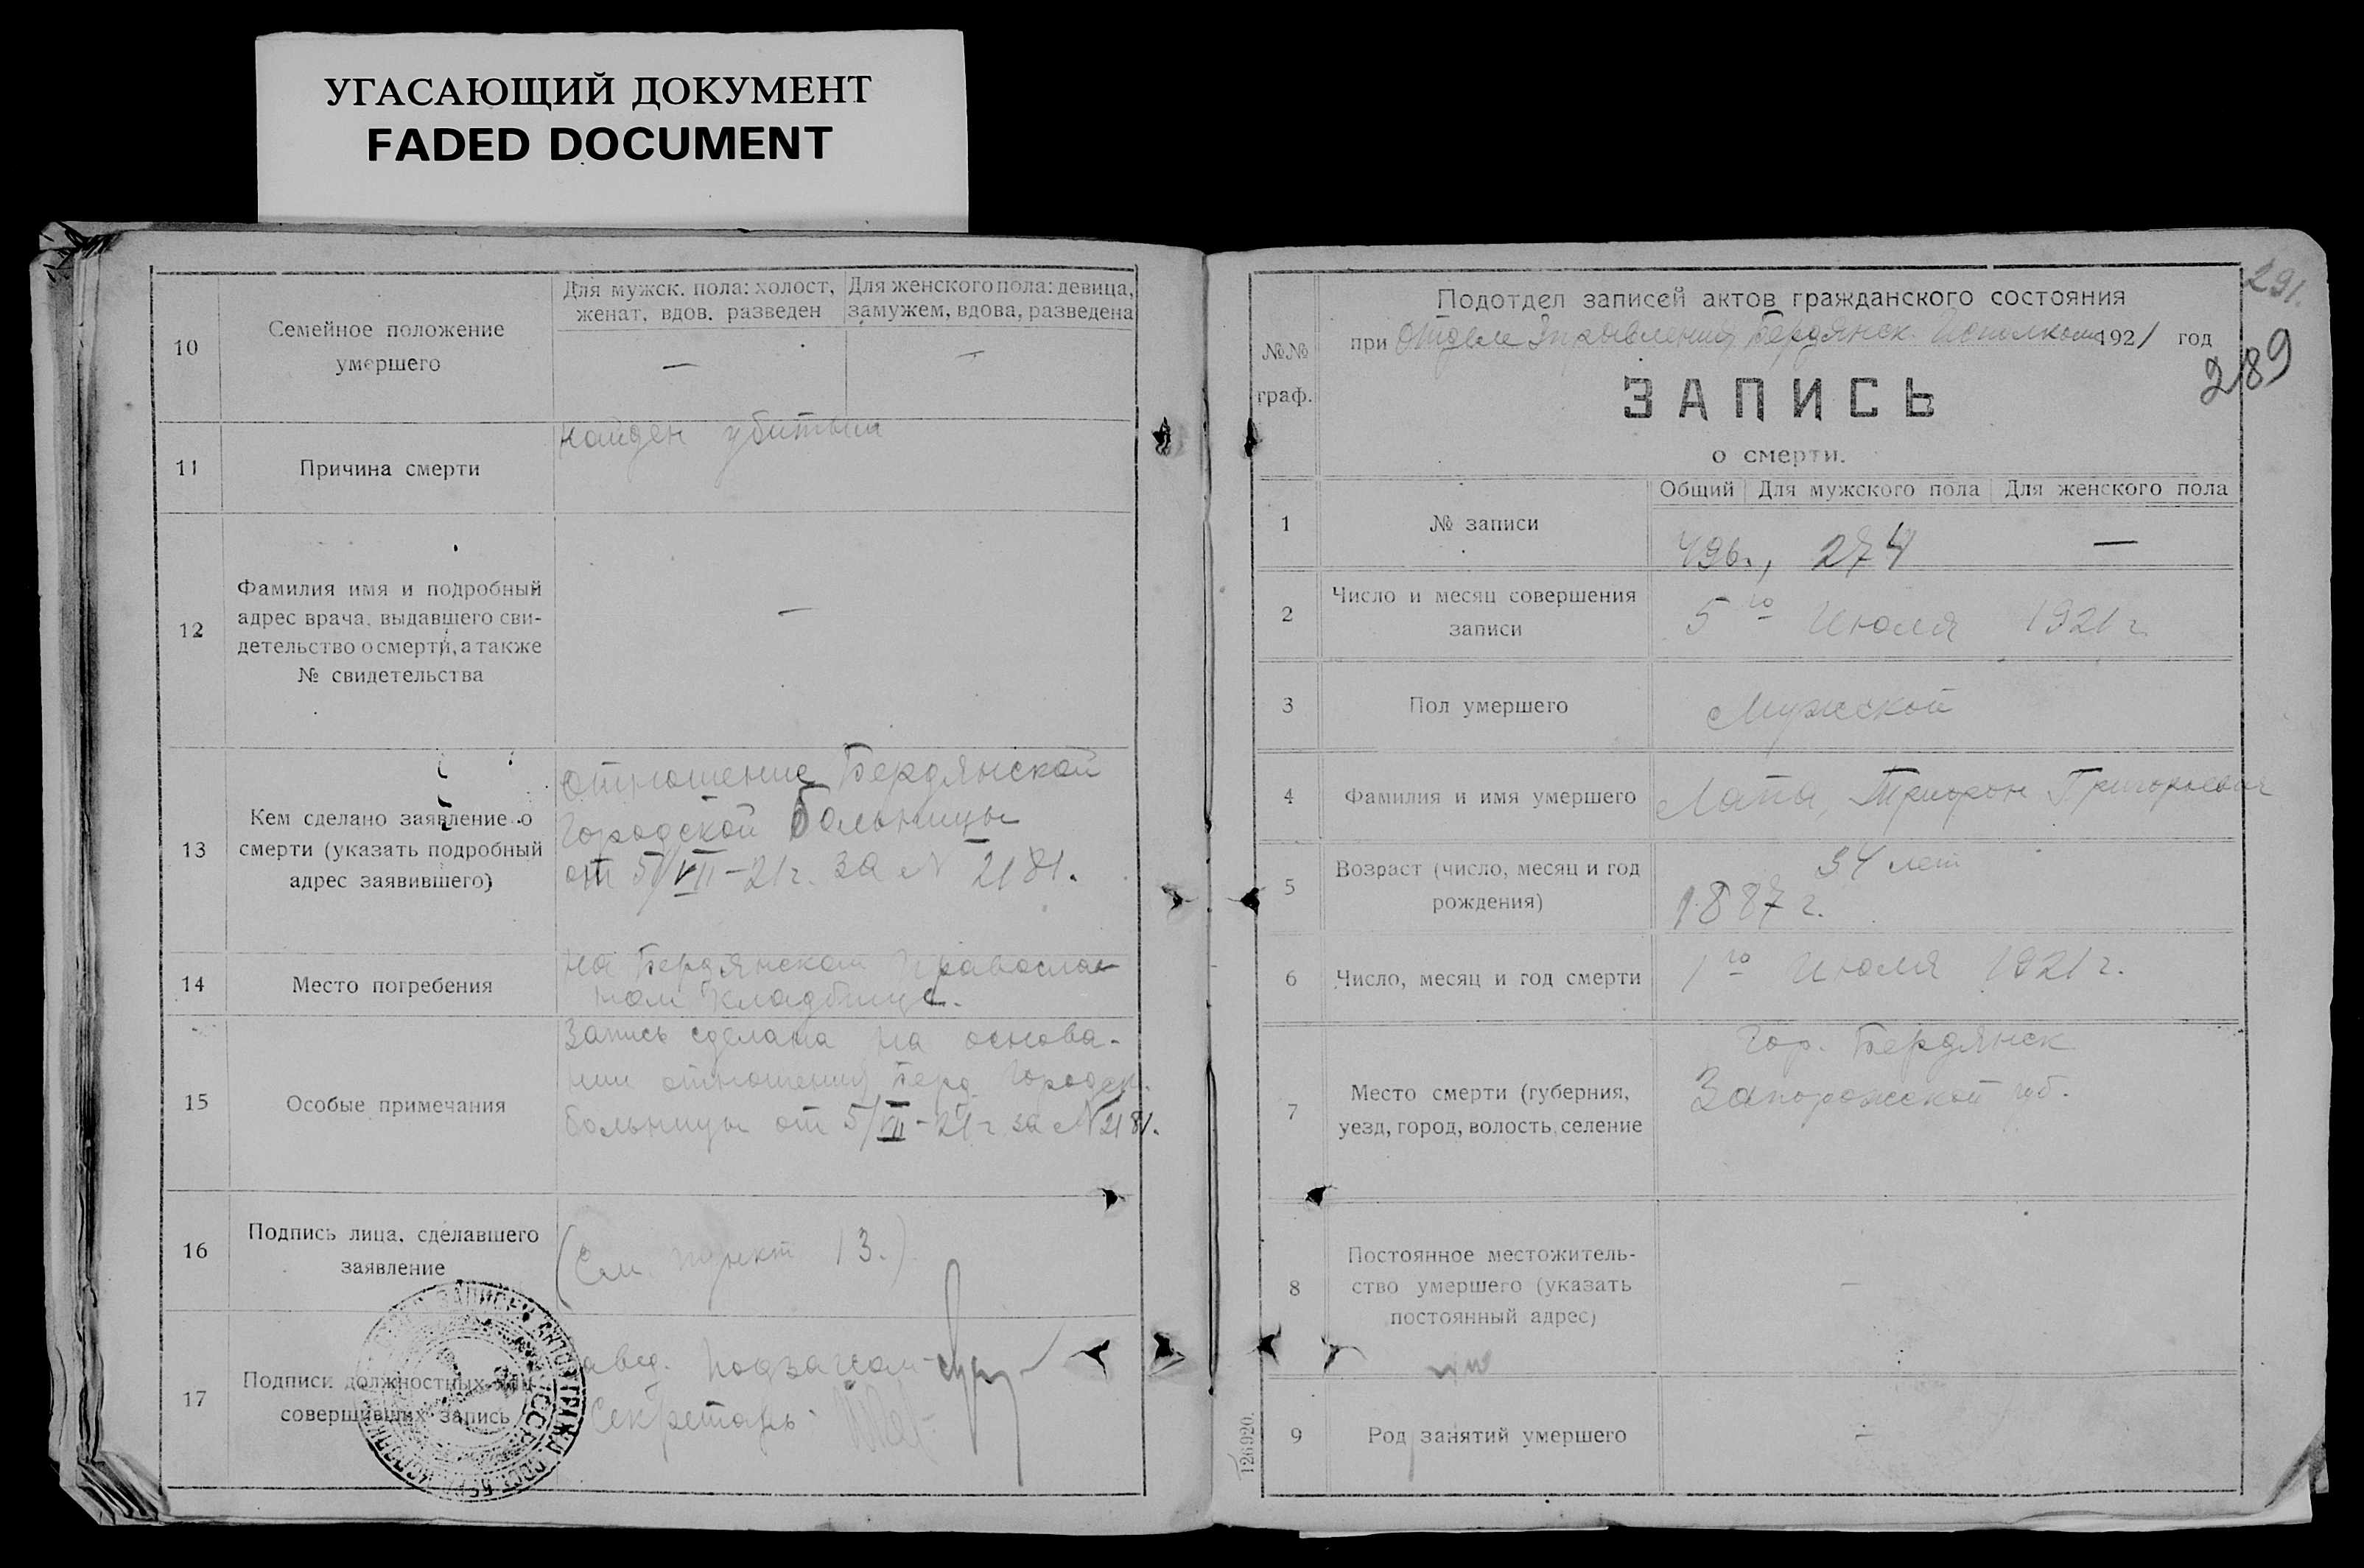 УГАСАЮЩИЙ ДОКУМЕНТ
FADED DOCUMENT
10
Семейное положение
умершего
Для мужск. пола: холост,
женат, вдов. разведен
Для женского пола: девица,
замужем, вдова, разведена
—
—
11
Причина смерти
Найден убитым
12
Фамилия имя и подробный
адрес врача, выдавшего сви-
детельство о смерти, а также
№ свидетельства
—
13
Кем сделано заявление о
смерти (указать подробный
адрес заявившего)
Отношение Бердянской
Городской Больницы
от 5/VII-21г. за N 2181.
14
Место погребения
на Бердянском Православ
ном Кладбище.
15
Особые примечания
Запись сделана на основа-
нии отношения Берд. Городск.
Больницы от 5/VII-21г за N 2181.
16
Подпись лица, сделавшего
заявление
(См. пункт 13.)
17
Подписи должностных лиц
совершивших запись
Завед. Подзагсом
Секретарь
291.
289
№№
граф.
Подотдел записей актов гражданского состояния
при Отделе Управления Бердянск. Исполкома 1921 год
ЗАПИСЬ
о смерти.
1
№ записи
Общий
Для мужского пола
Для женского пола
496., 274 —
2
Число и месяц совершения
записи
5го Июля 1921 г.
3
Пол умершего
Мужской
4
Фамилия и имя умершего
Лапы, Трифон Григорьевич
5
Возраст (число, месяц и год
рождения)
34 лет
1887 г.
6
Число, месяц и год смерти
1го Июля 1921 г.
7
Место смерти (губерния,
уезд, город, волость, селение
Гор. Бердянск
Запорожской губ.
8
Постоянное местожитель-
ство умершего (указать
постоянный адрес)
—
9
Род занятий умершего
—
126920.